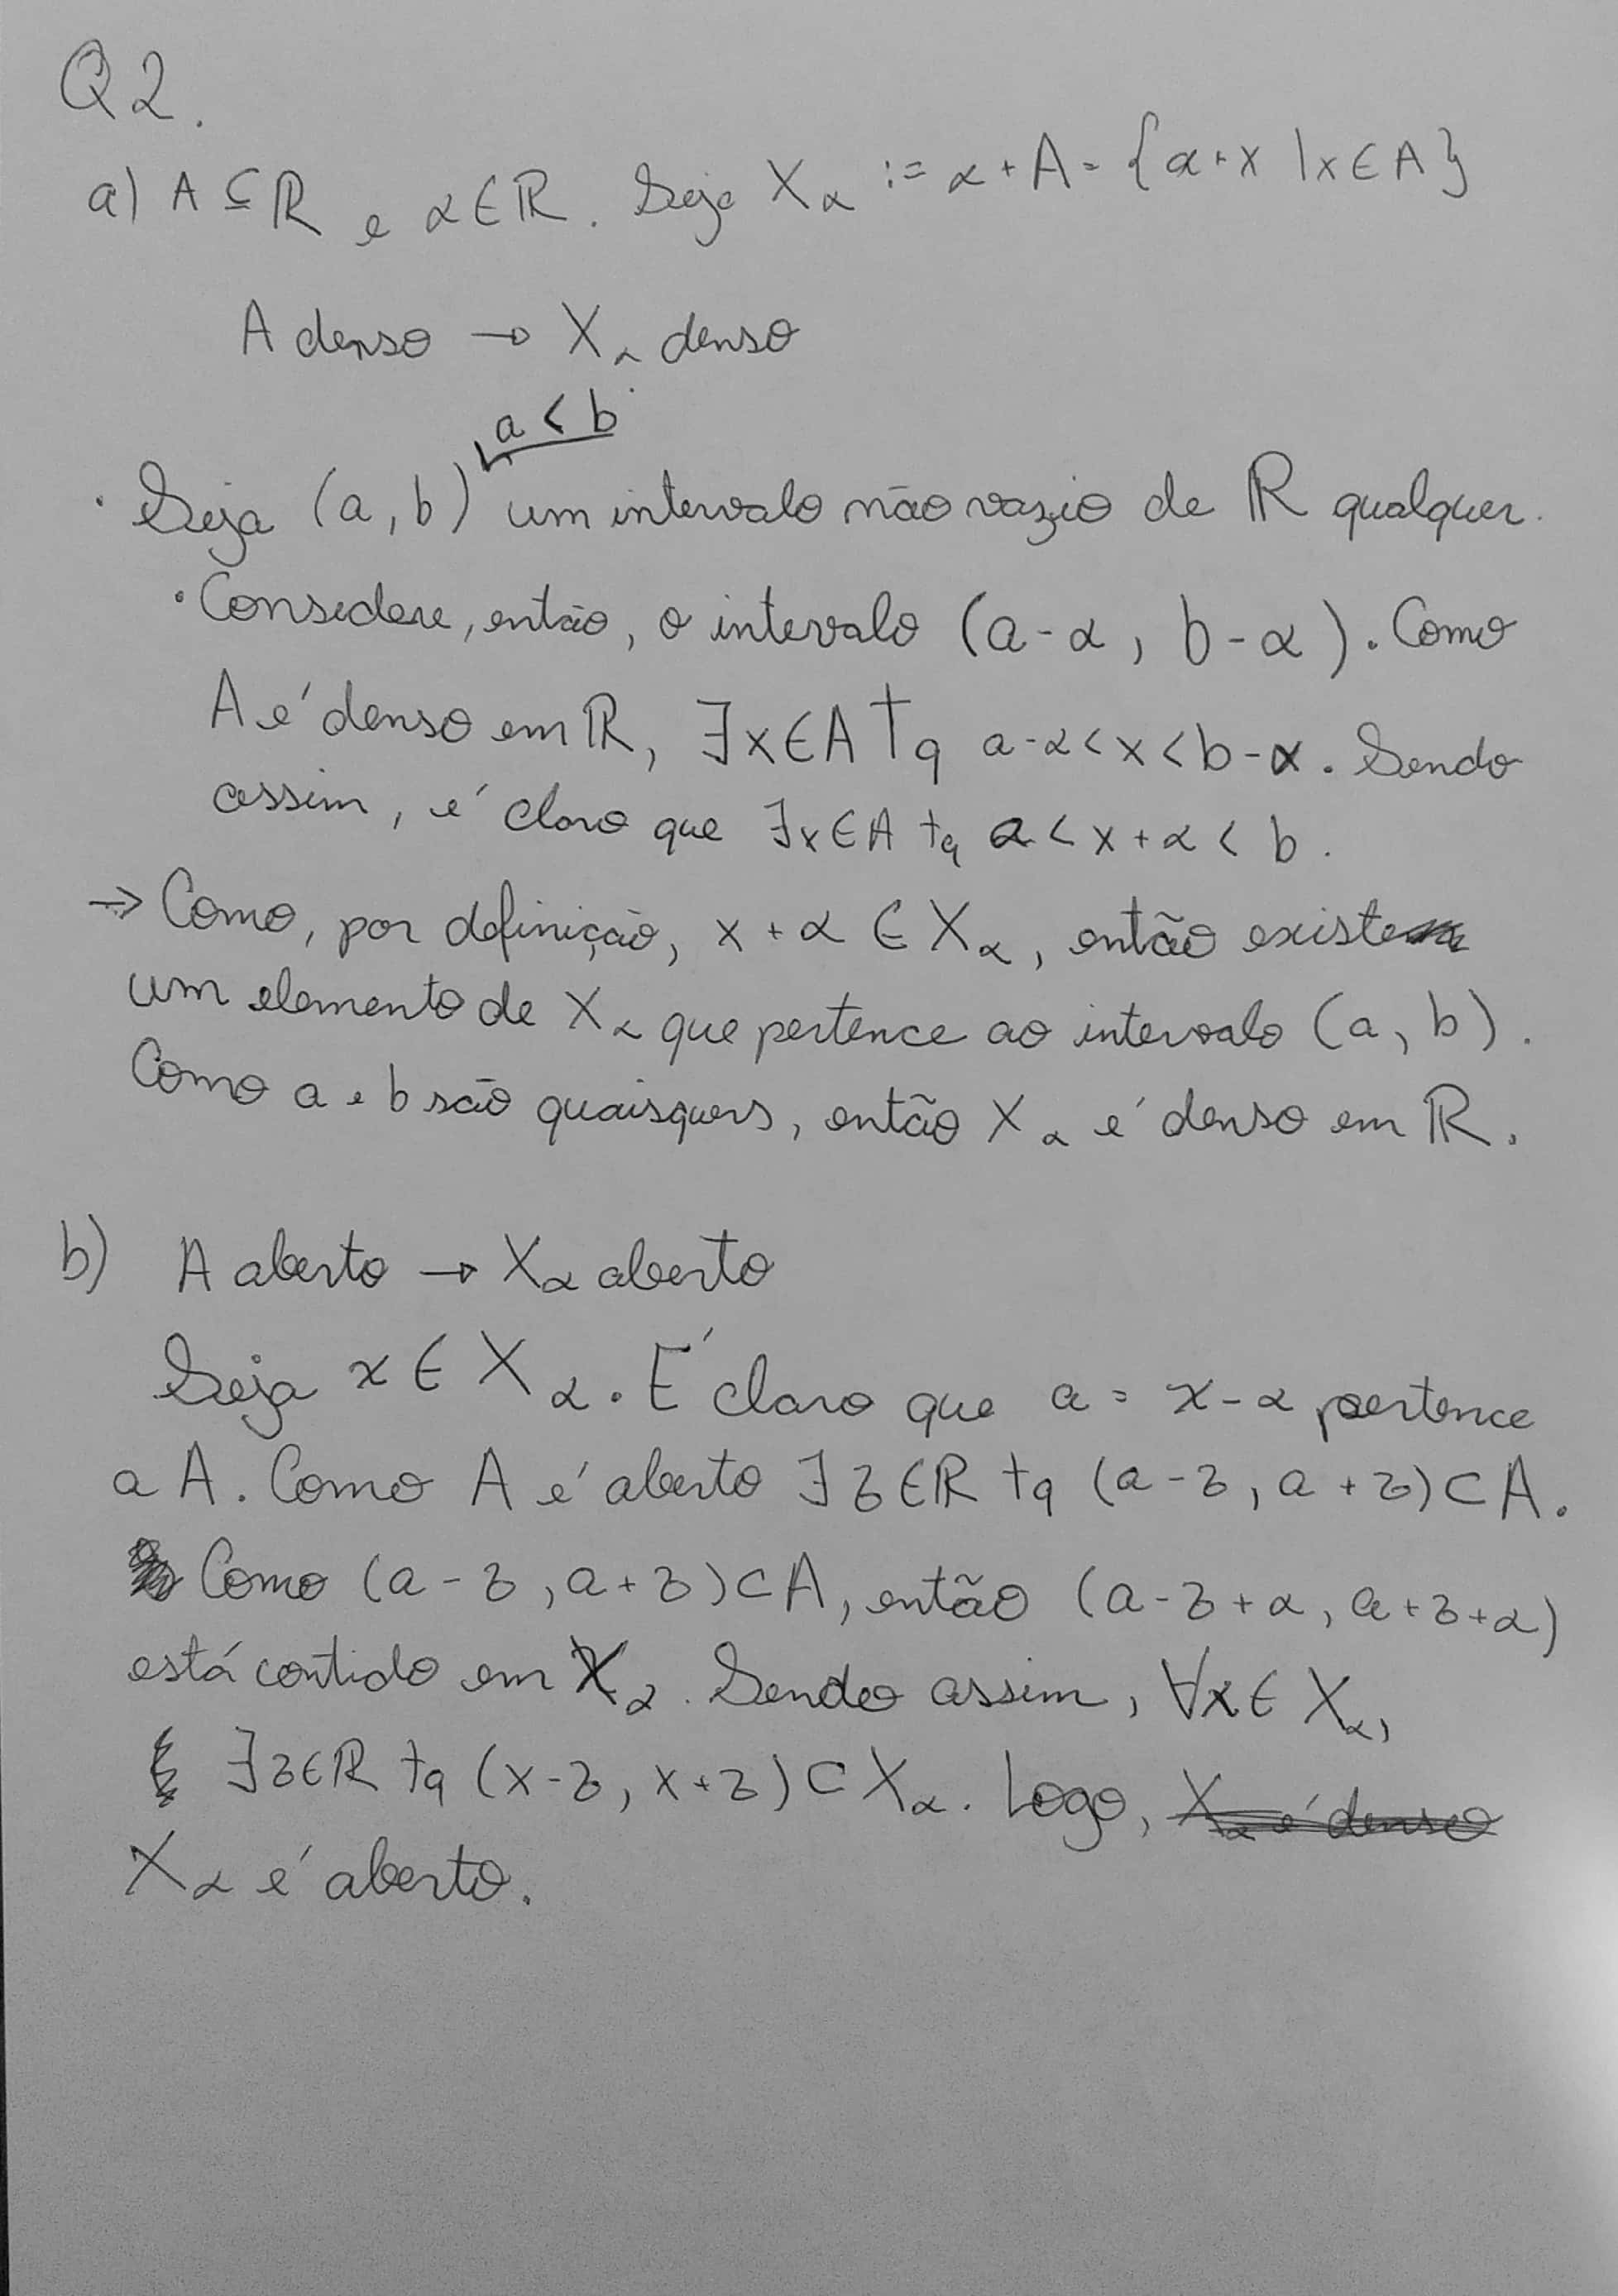 Q2.
a) A ⊆ ℝ e α ∈ ℝ. Seja X_α := α + A = {α + x | x ∈ A}
A denso → X_α denso
a < b
· Seja (a, b) um intervalo não vazio de ℝ qualquer.
· Considere, então, o intervalo (a - α, b - α). Como
A é denso em ℝ, ∃x ∈ A tq a - α < x < b - α. Sendo
assim, é claro que ∃x ∈ A tq a < x + α < b.
→ Como, por definição, x + α ∈ X_α, então existe
um elemento de X_α que pertence ao intervalo (a, b).
Como a e b são quaisquers, então X_α é denso em ℝ.
b) A aberto → X_α aberto
Seja x ∈ X_α. É claro que a = x - α pertence
a A. Como A é aberto ∃ z ∈ ℝ tq (a - z, a + z) ⊂ A.
Como (a - z, a + z) ⊂ A, então (a - z + α, a + z + α)
está contido em X_α. Sendo assim, ∀x ∈ X_α,
∃ z ∈ ℝ tq (x - z, x + z) ⊂ X_α. Logo, X_α é denso
X_α é aberto.